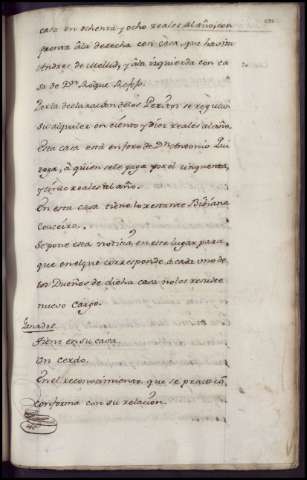 casa en ochenta y ocho reales al año, con
fronta a la derecha con casa que havita
Andres de Mellid, y a la izquierda con ca
sa de Dn. Roque
Por la declaracion de los Peritos se regulo
su alquiler en ciento y diez reales al año.
Esta casa está en foro de Dn. Antonio Qui
roga, a quien se le paga por el cinquenta,
y cinco reales al año.
En esta casa tiene lo restante Bibiana
Couceiro.
Se pone esta notica en este lugar para
que en el que corresponde a cada uno de
los Dueños de dicha casa no les resulte
nuevo Cargo.
Ganados
Tiene en su casa
Un Cerdo.
En el reconocimiento que se practicó
conforma con su relacion.